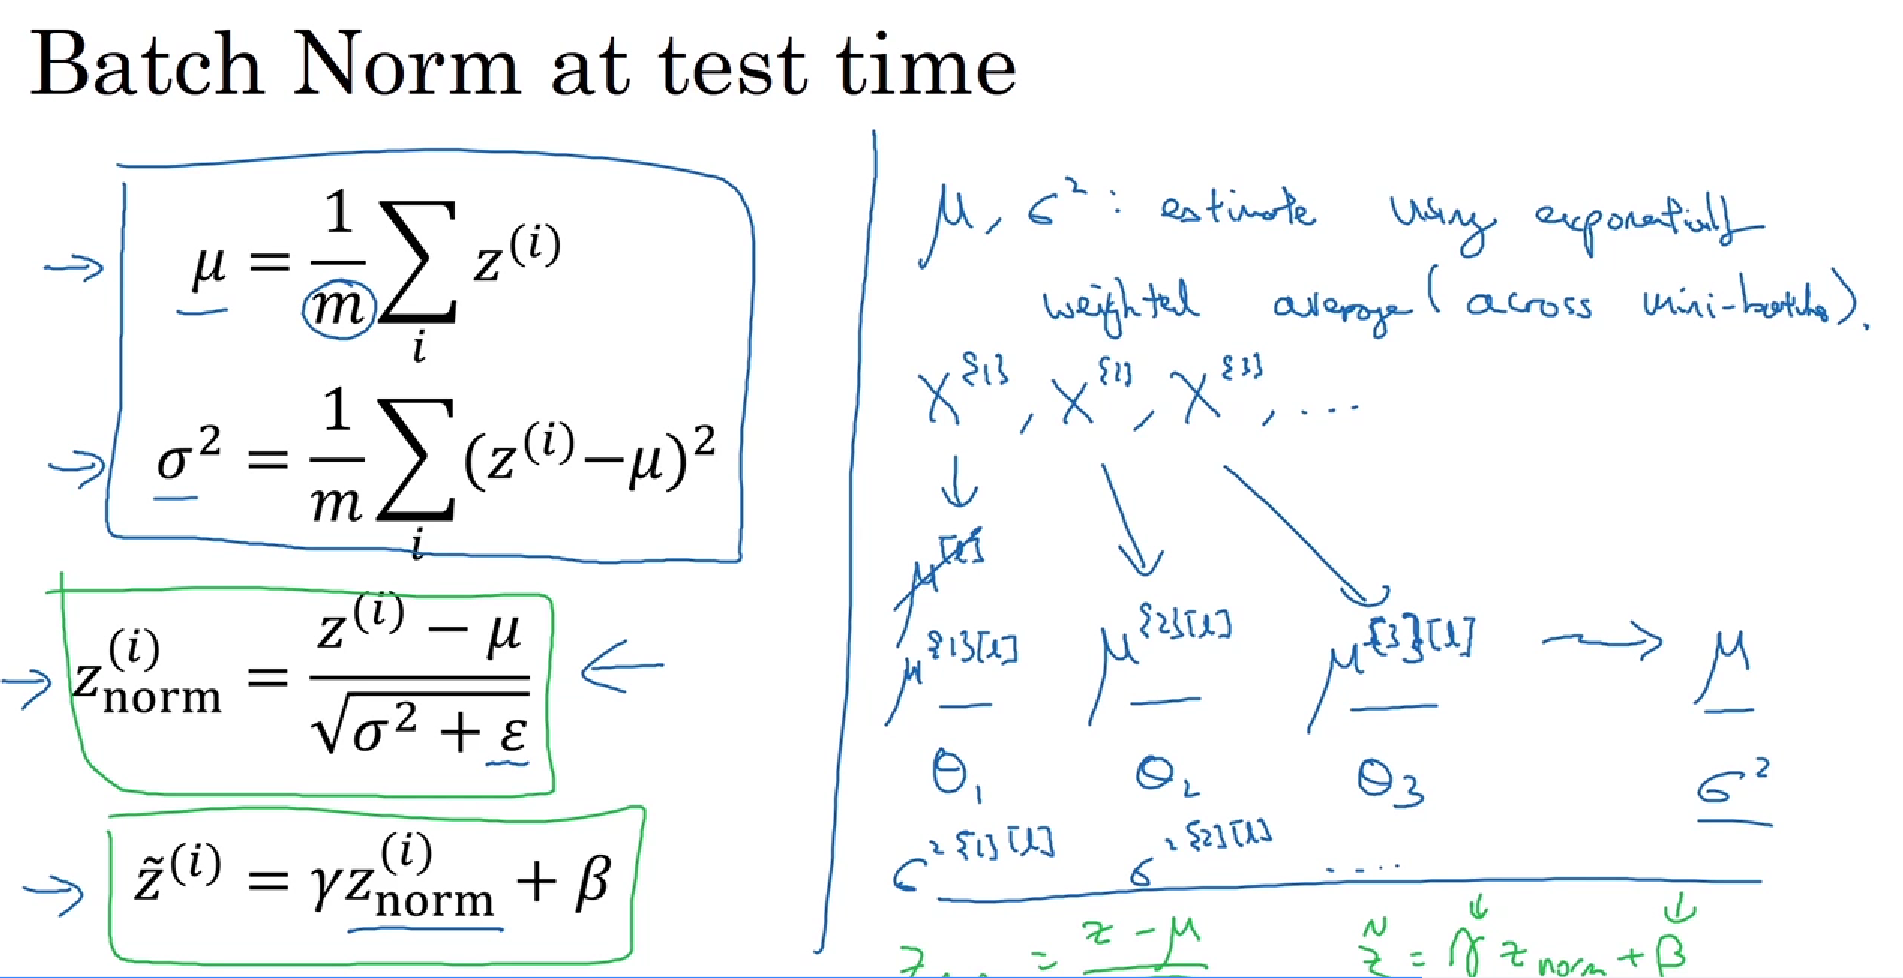 Batch Norm at test time
μ = 1/m ∑_i z^(i)
σ² = 1/m ∑_i (z^(i)−μ)²
z_norm^(i) = (z^(i) − μ)/√(σ² + ε)
z̃^(i) = γz_norm^(i) + β
μ, σ²: estimate using exponentially
weighted average (across mini-batches).
X^{1}, X^{2}, X^{3}, ...
μ^[l]
μ^{1}[l] μ^{2}[l] μ^{3}[l] → μ
θ₁ θ₂ θ₃ σ²
σ²^{1}[l] σ²^{2}[l] ....
= z − μ z̃ = γ z_norm + β